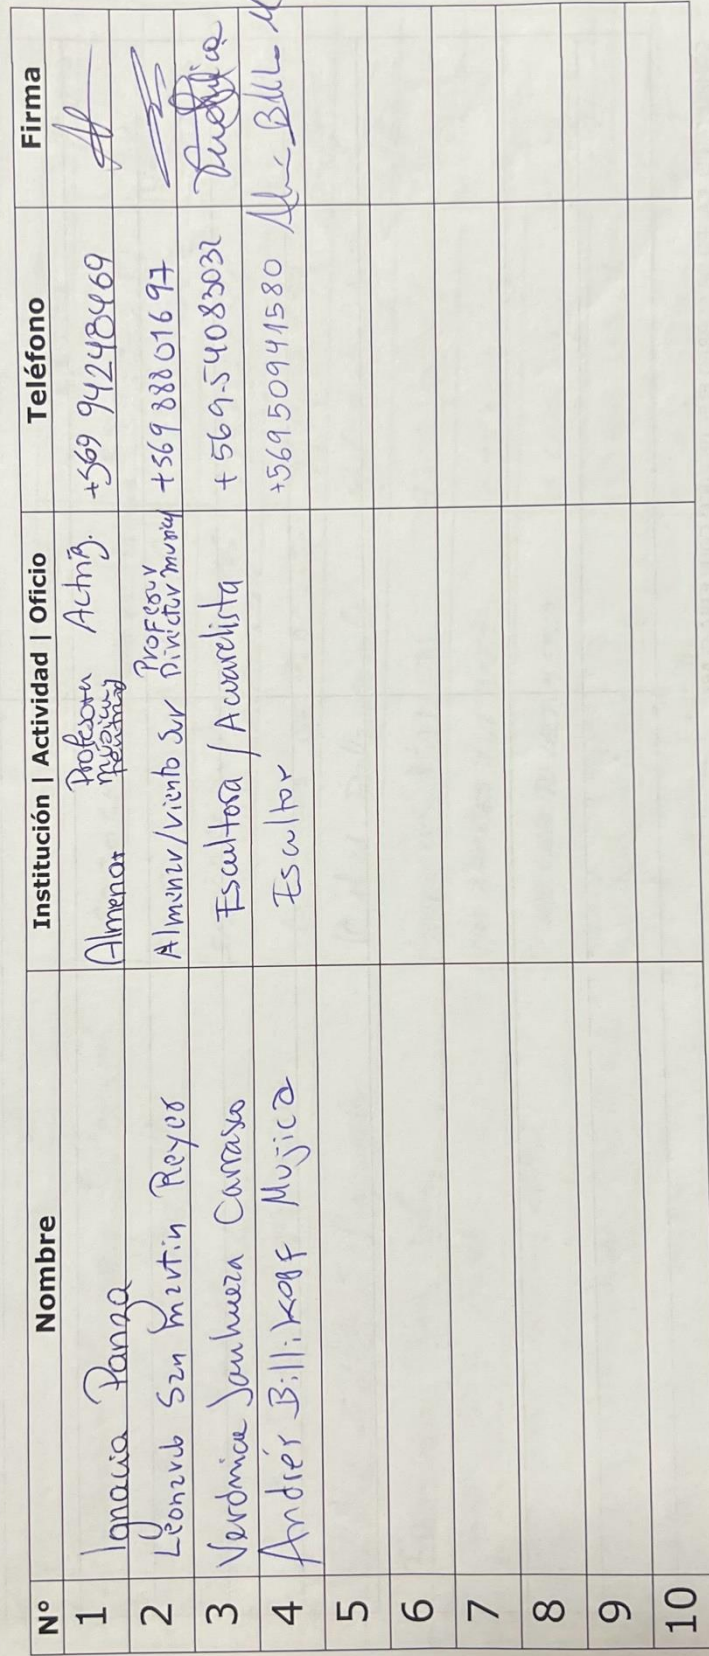 N° Nombre Institución | Actividad | Oficio Teléfono Firma
1 Ignacia Panza Almenar Profesora Música Actriz. +569 94248469
2 Leonardo San Martin Reyes Almenar/Viento Sur Profesor Director musical +569 88801697
3 Verónica Sanhueza Carrasco Escultora / Acuarelista +569-54083032
4 Andrés Billikopf Mujica Escultor +56950941580
5
6
7
8
9
10